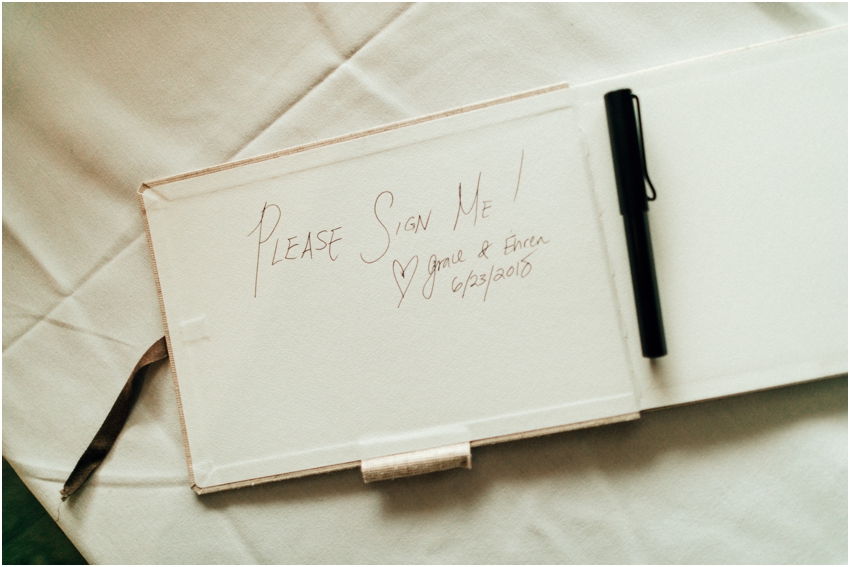 PLEASE SIGN ME!
♡ Grace & Ehren
6/23/2018